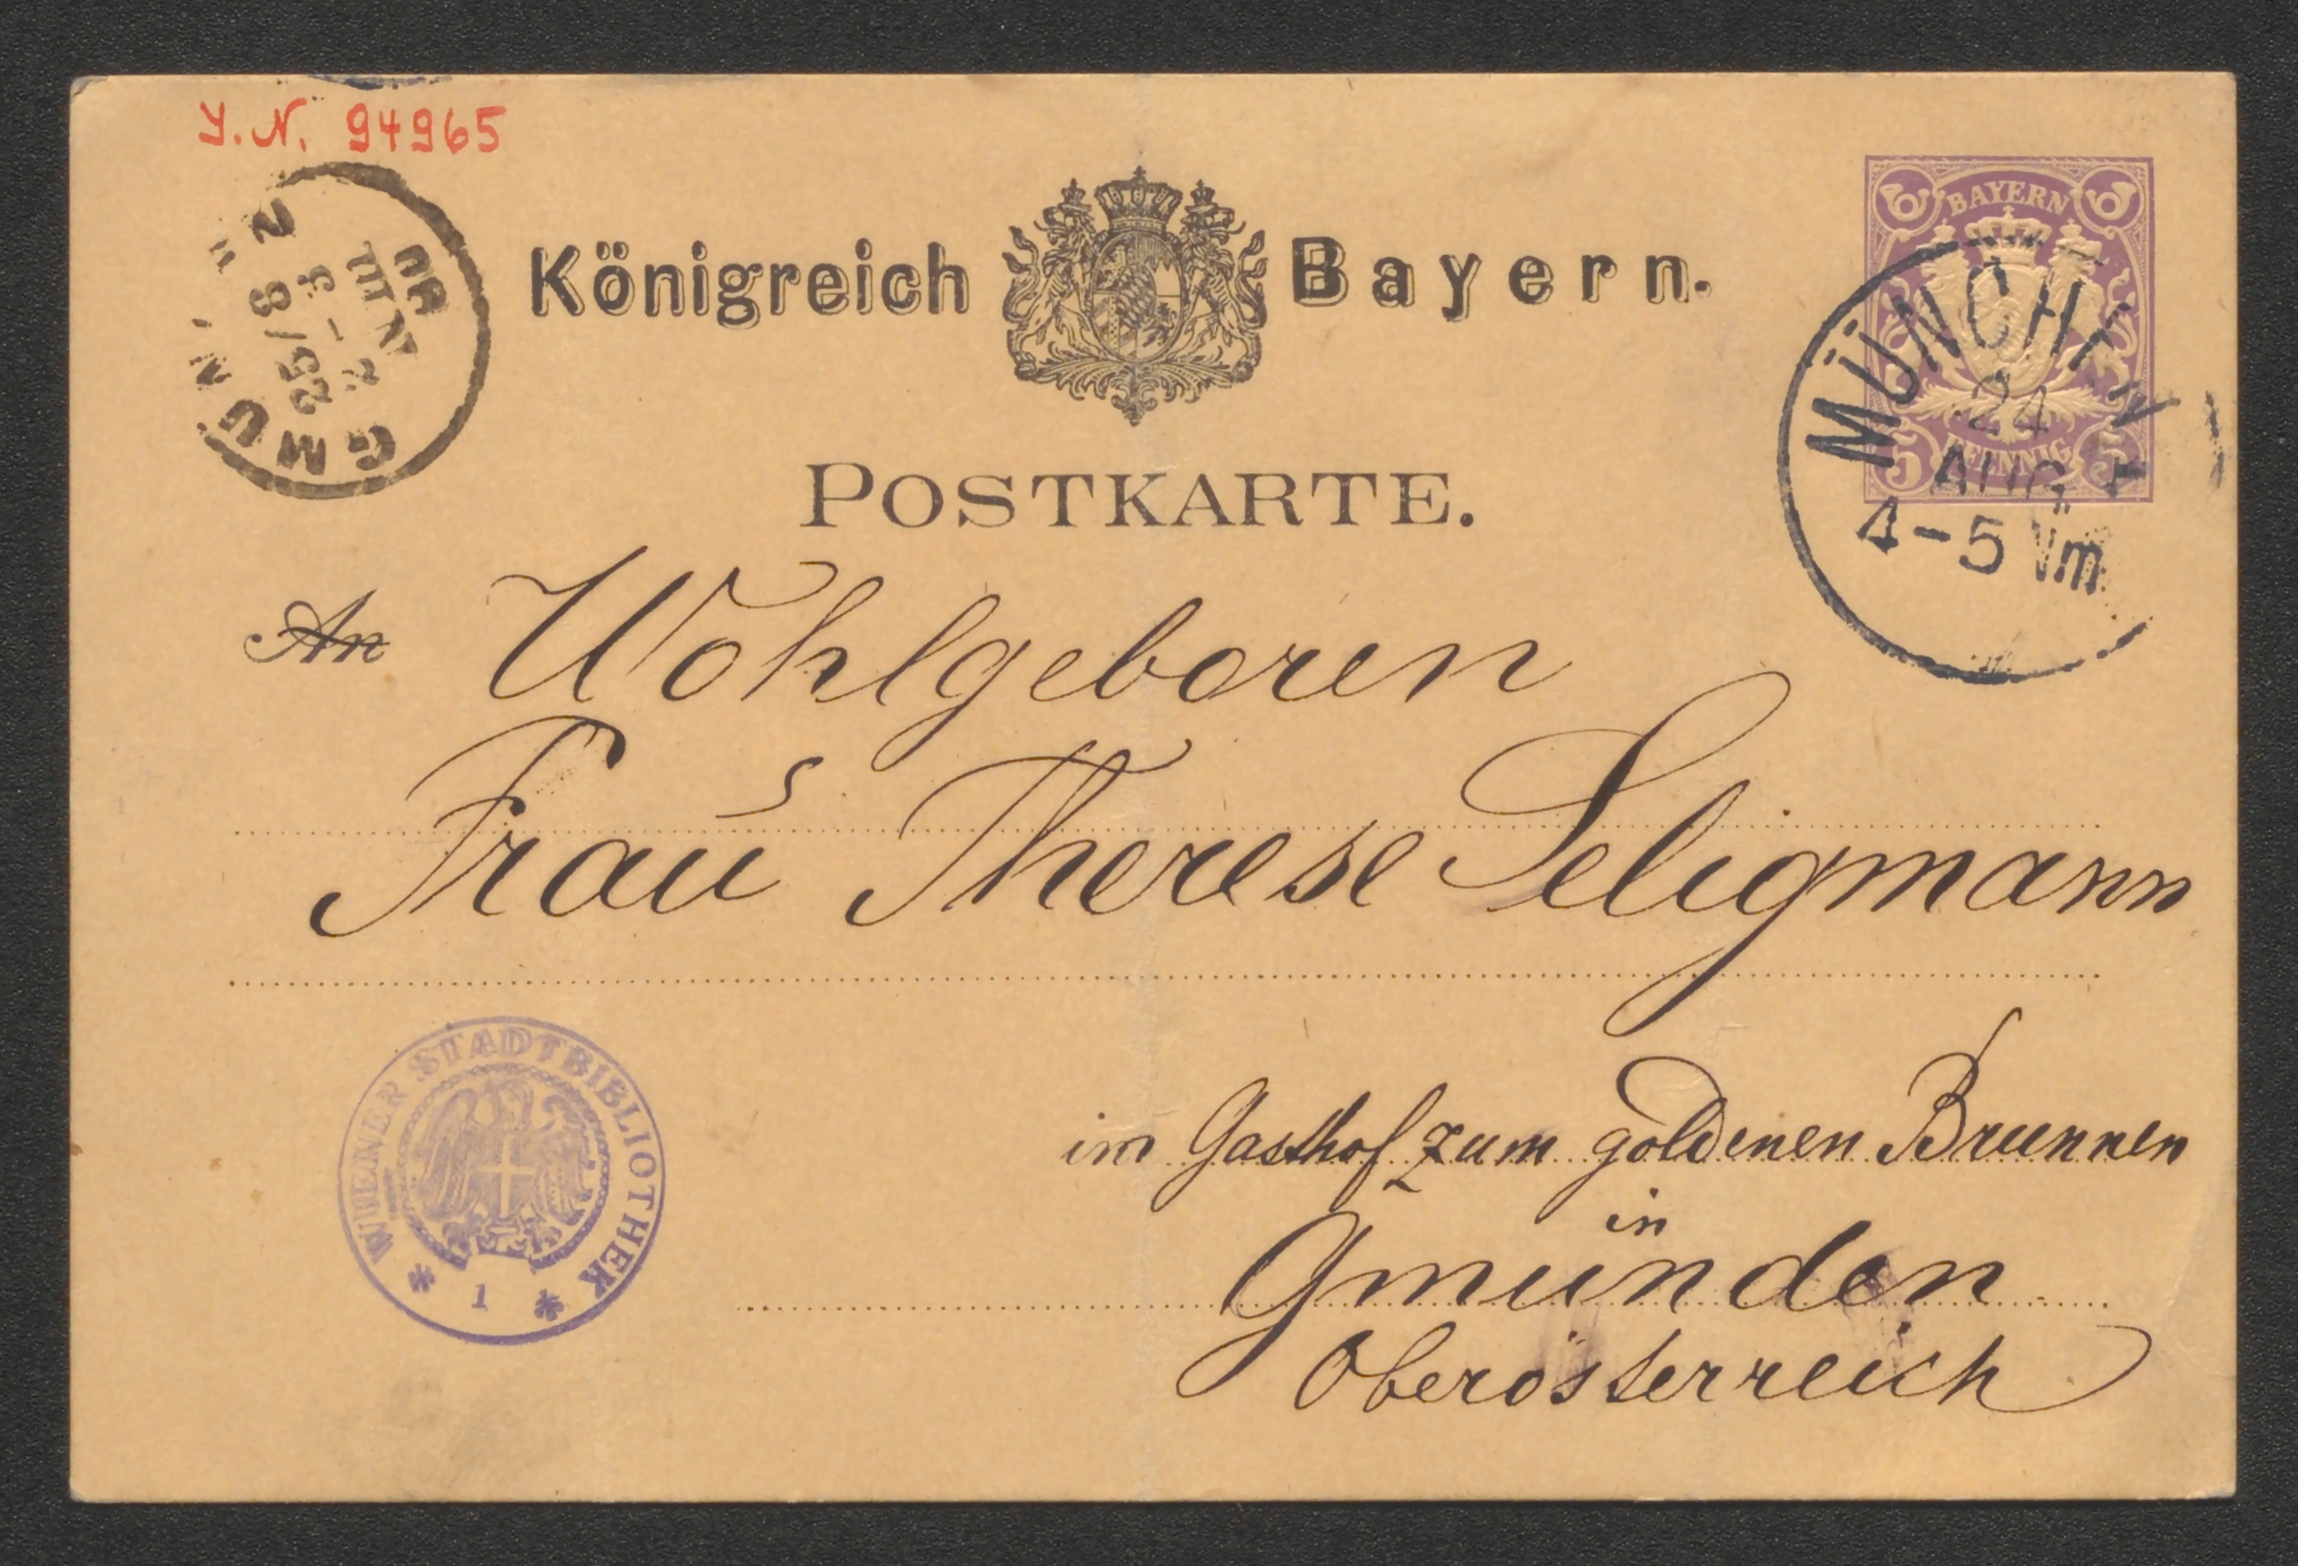 J. N. 94965
Königreich Bayern.
BAYERN
5 PFENNIG 5
MÜNCHEN
24
AUG
4-5 Vm
GMUN
25/8
POSTKARTE.
An Wohlgeboren
Frau Therese Seligmann
im Gasthof zum goldenen Brunnen
in
Gmunden
Oberösterreich
WIENER STAEDTBIBLIOTHEK
* 1 *